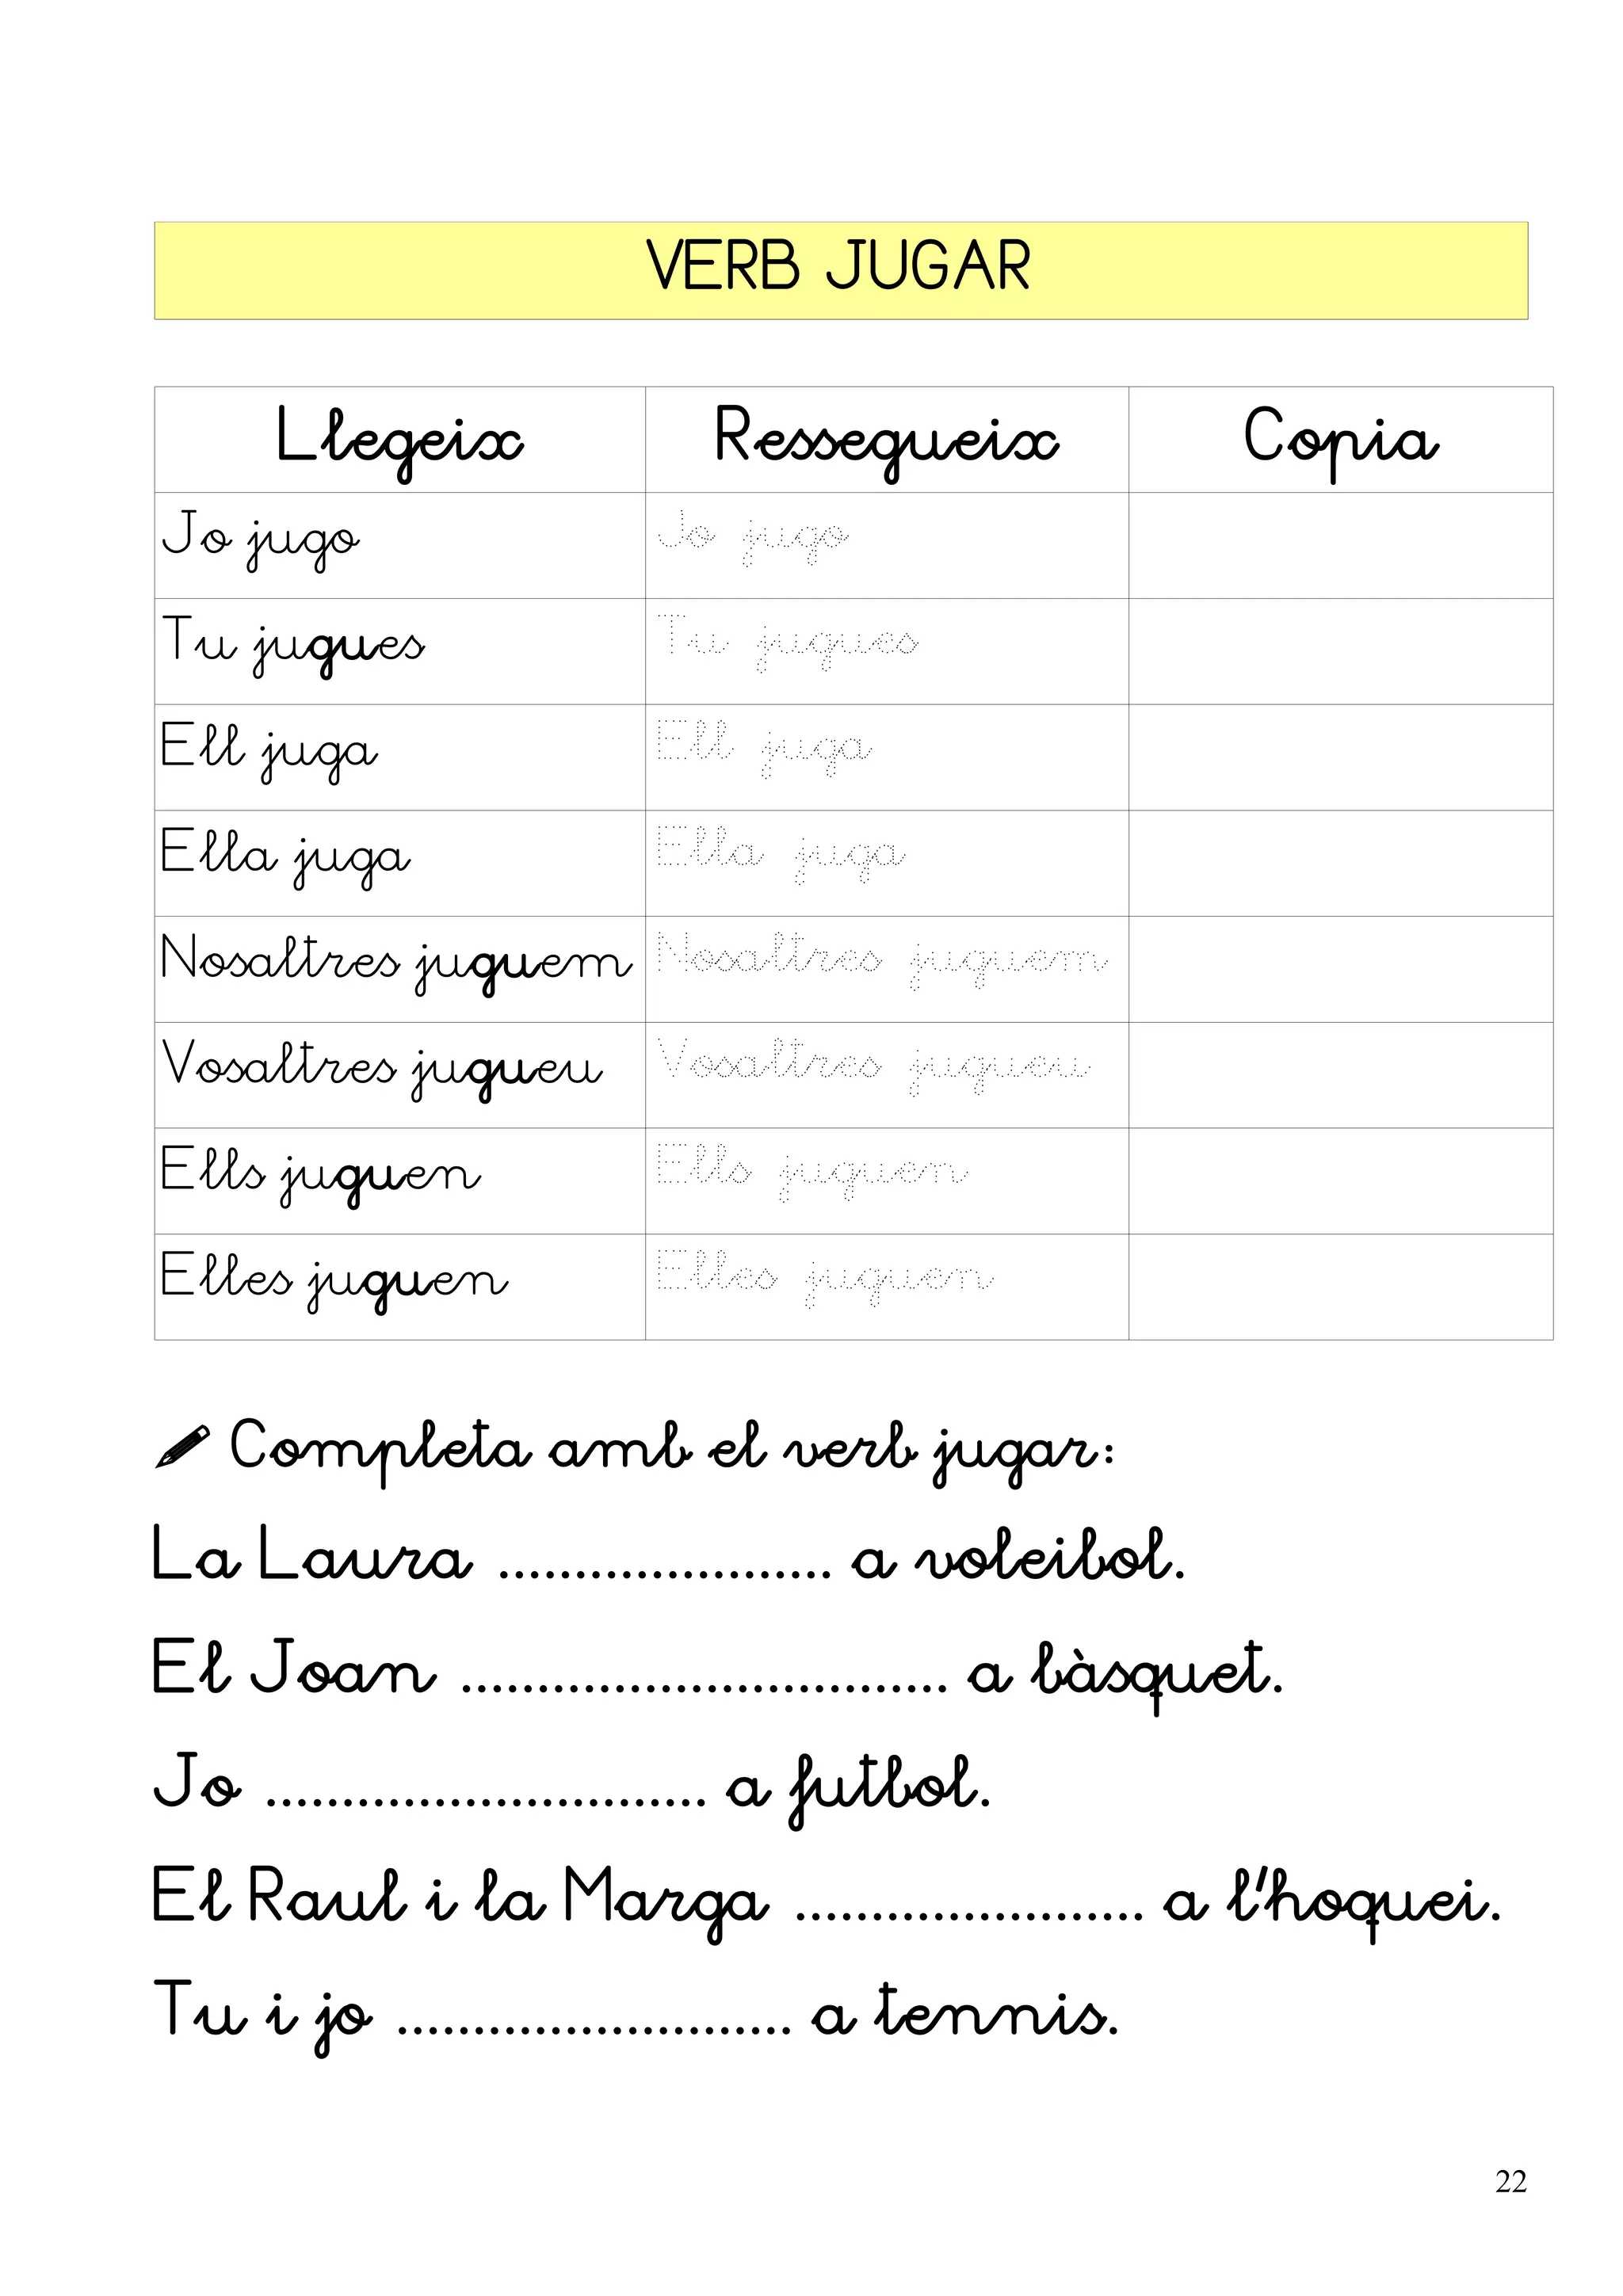 VERB JUGAR
Llegeix Ressegueix Copia
Jo jugo Jo jugo
Tu jugues Tu jugues
Ell juga Ell juga
Ella juga Ella juga
Nosaltres juguem Nosaltres juguem
Vosaltres jugueu Vosaltres jugueu
Ells juguen Ells juguen
Elles juguen Elles juguen
Completa amb el verb jugar:
La Laura ...................... a voleibol.
El Joan ................................ a bàsquet.
Jo ............................. a futbol.
El Raul i la Marga ....................... a l'hoquei.
Tu i jo .......................... a tennis.
22